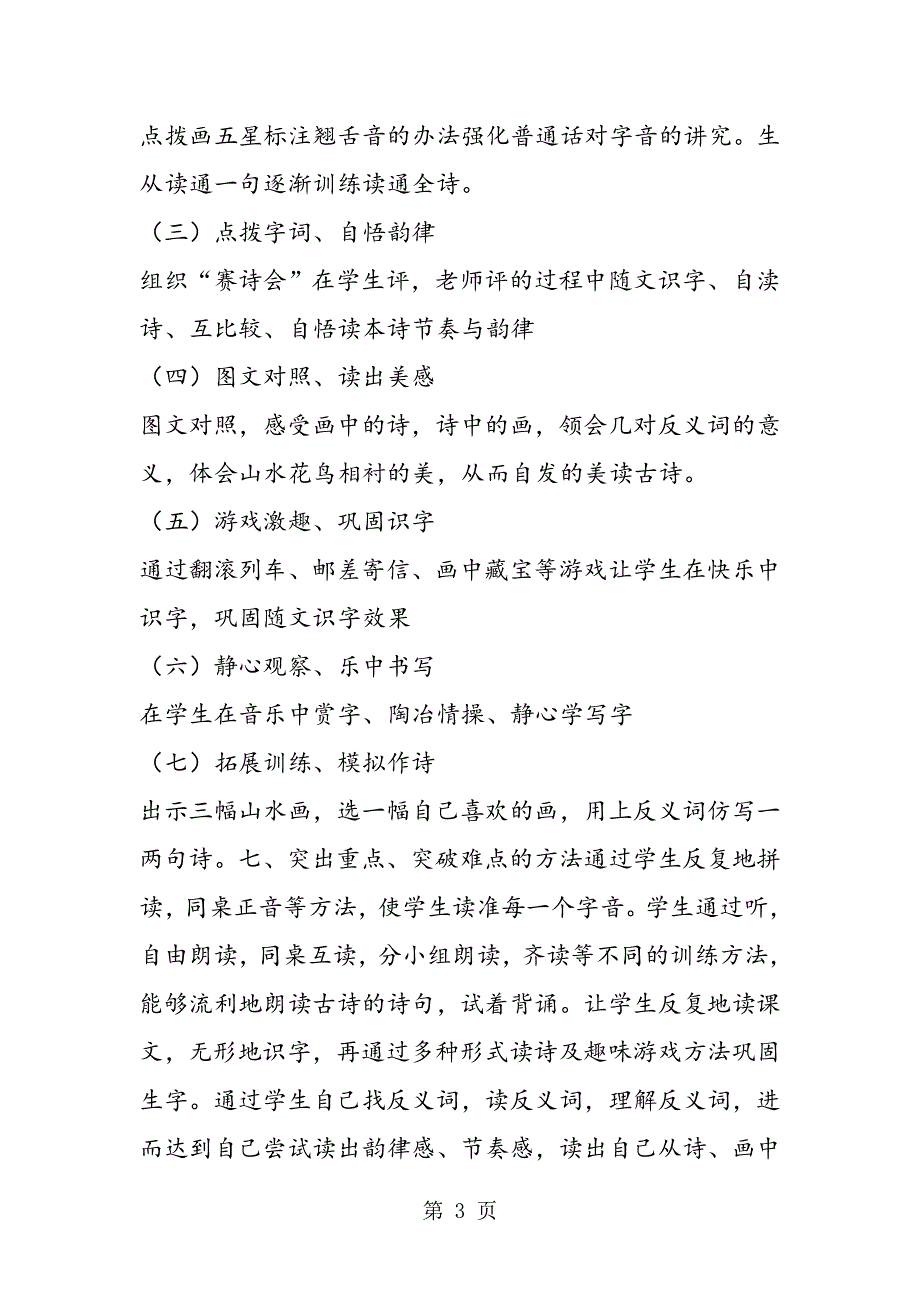 点拨画五星标注翘舌音的办法强化普通话对字音的讲究。生
从读通一句逐渐训练读通全诗。
（三）点拨字词、自悟韵律
组织“赛诗会”在学生评，老师评的过程中随文识字、自渎
诗、互比较、自悟读本诗节奏与韵律
（四）图文对照、读出美感
图文对照，感受画中的诗，诗中的画，领会几对反义词的意
义，体会山水花鸟相衬的美，从而自发的美读古诗。
（五）游戏激趣、巩固识字
通过翻滚列车、邮差寄信、画中藏宝等游戏让学生在快乐中
识字，巩固随文识字效果
（六）静心观察、乐中书写
在学生在音乐中赏字、陶冶情操、静心学写字
（七）拓展训练、模拟作诗
出示三幅山水画，选一幅自己喜欢的画，用上反义词仿写一
两句诗。七、突出重点、突破难点的方法通过学生反复地拼
读，同桌正音等方法，使学生读准每一个字音。学生通过听，
自由朗读，同桌互读，分小组朗读，齐读等不同的训练方法，
能够流利地朗读古诗的诗句，试着背诵。让学生反复地读课
文，无形地识字，再通过多种形式读诗及趣味游戏方法巩固
生字。通过学生自己找反义词，读反义词，理解反义词，进
而达到自己尝试读出韵律感、节奏感，读出自己从诗、画中
第 3 页